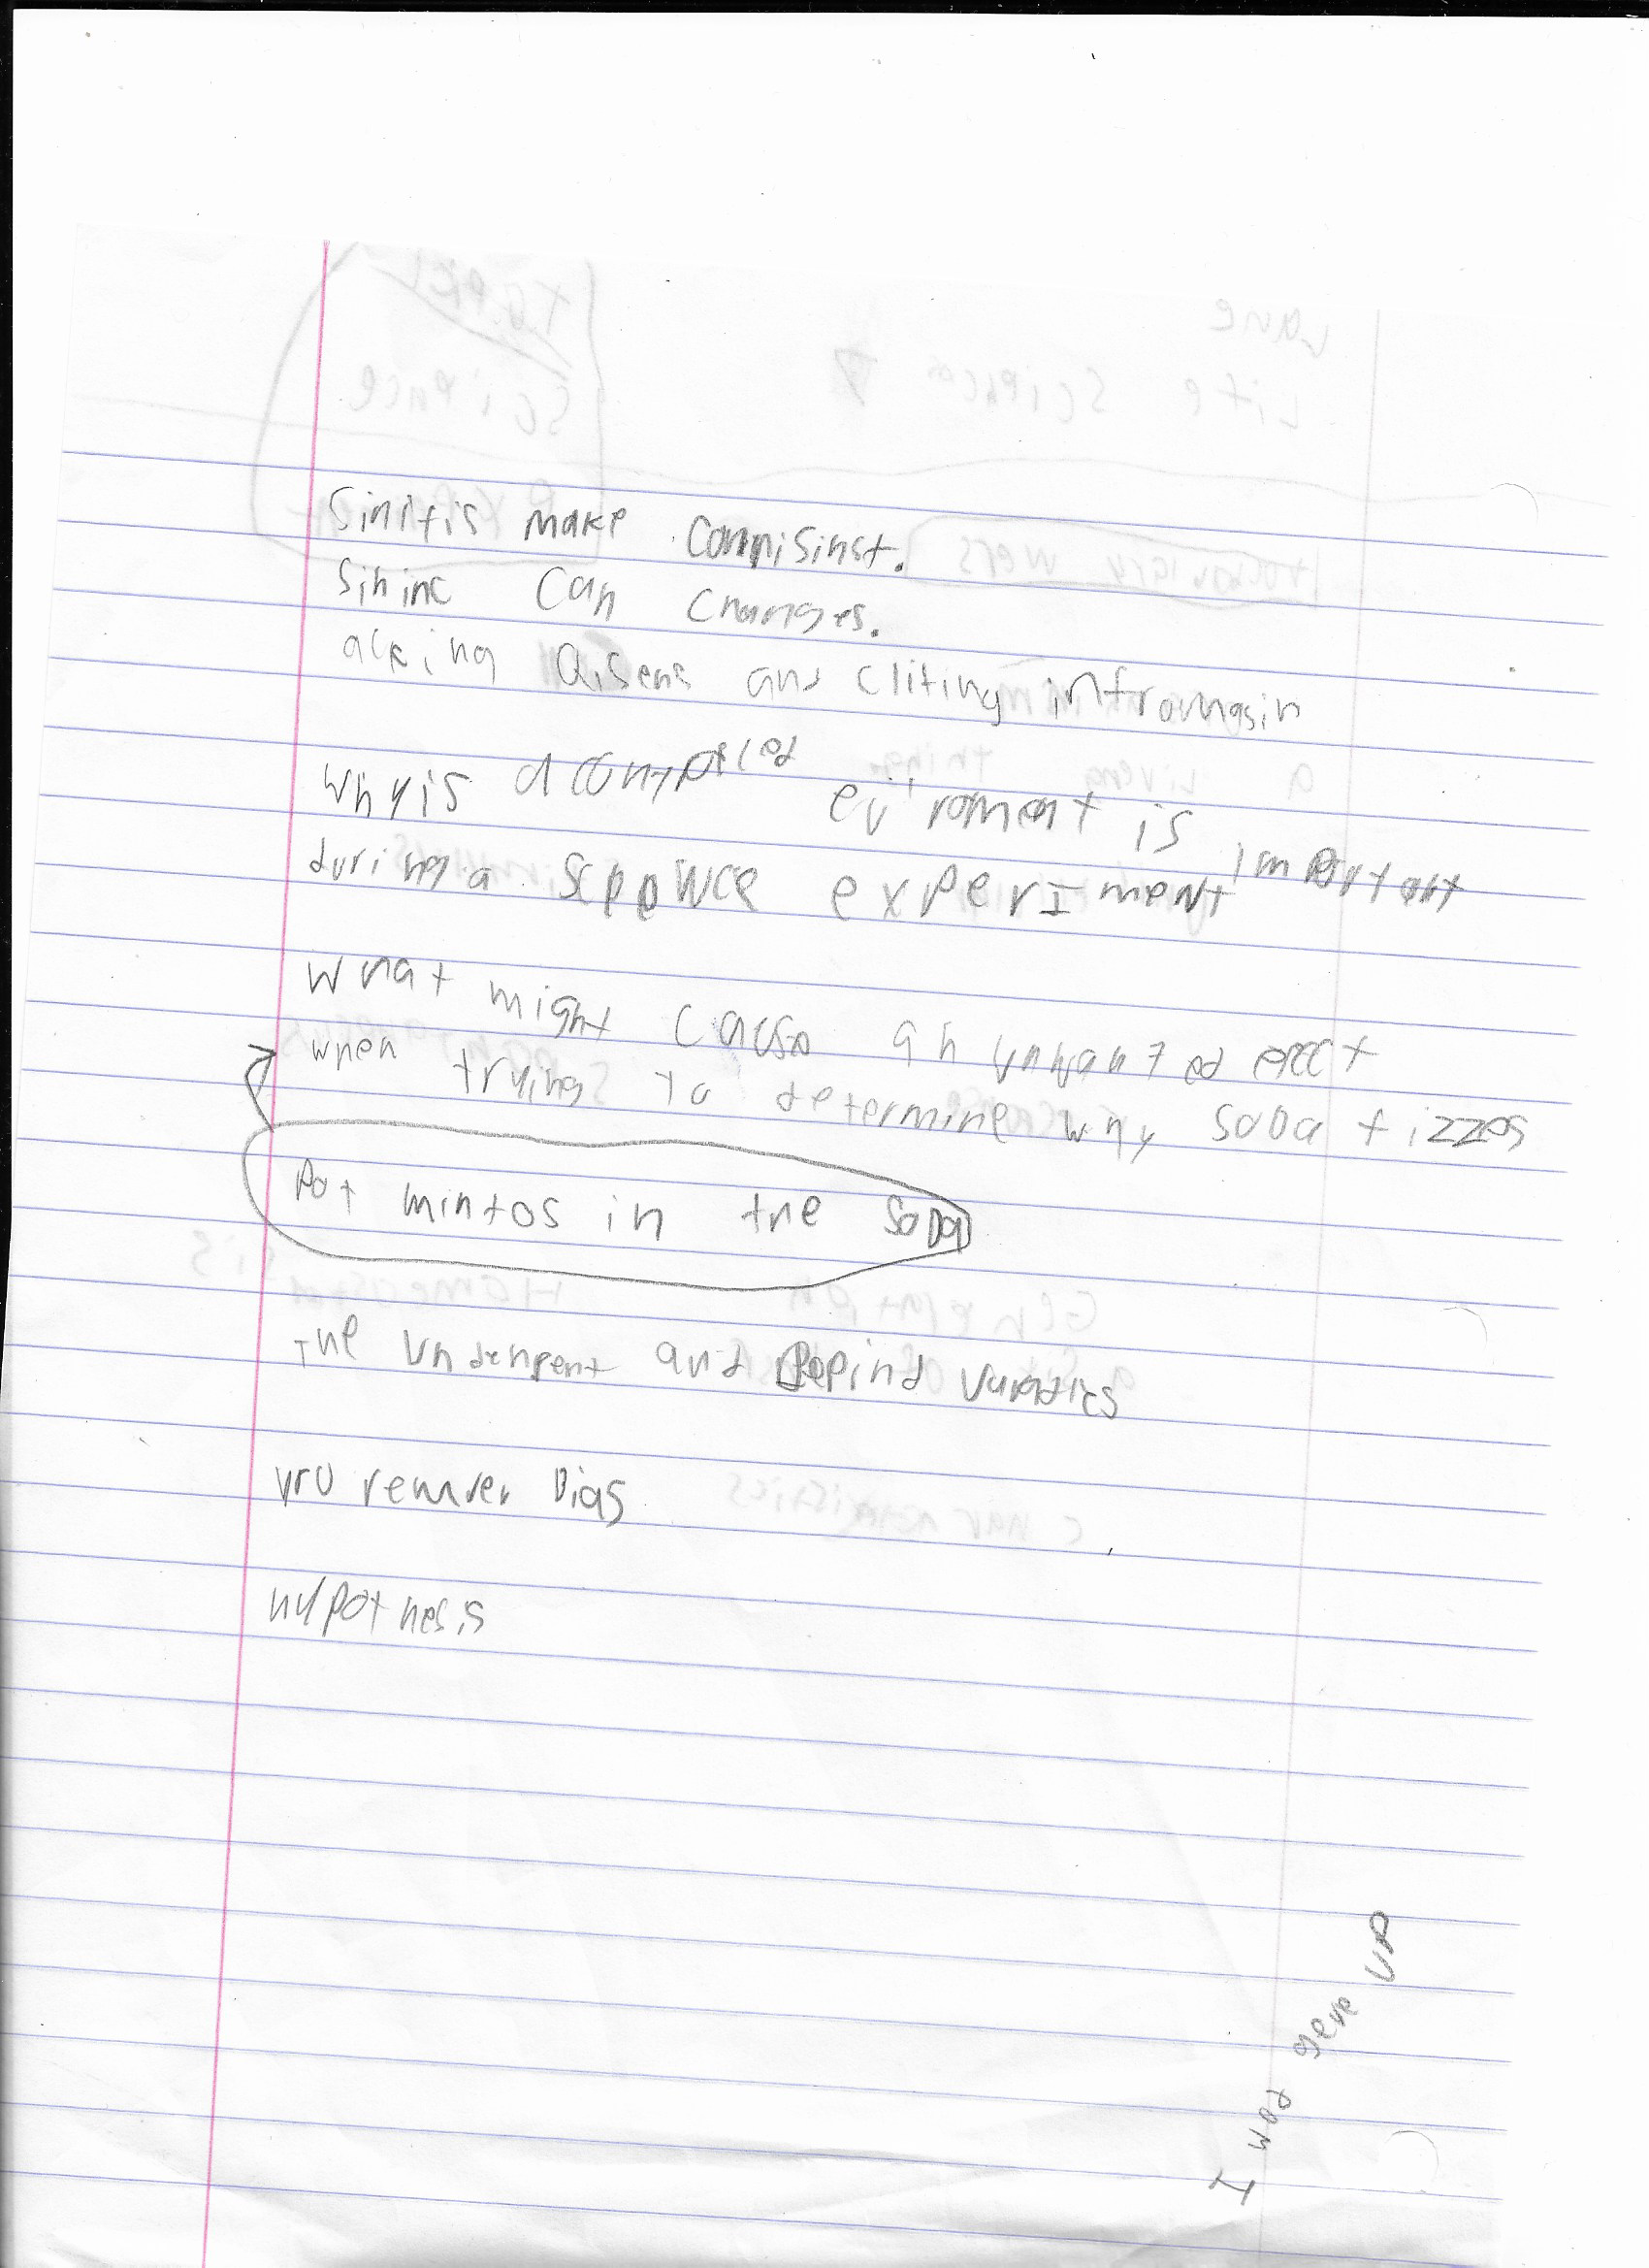 Sinitis make compisinst.
Sininc can changes.
acking Qisens and cliting infromgasin
Why is a contpcled eviroment is important
during a science experiment
What might cause an unwanted efect
when trying to determine why soda fizzes
Pot mintos in the soda
The undenpent and Depind
you remver Bias
hypothesis
I wod geve UP